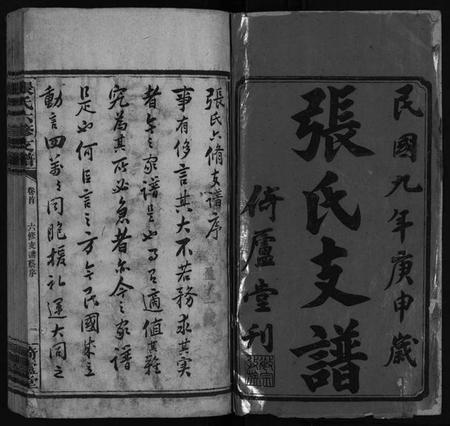 民國九年庚申歲
張氏支譜
倚廬堂刊
張氏六脩支譜序
事有侈言其大不若務求其實
者今之家譜是也乃有適值其難
究為其所必急者亦今之家譜
是也何臣言之方今民國成立
動言四萬萬同胞援禮運大同之
張氏六修支譜
卷首
六修支譜序
一
倚廬堂